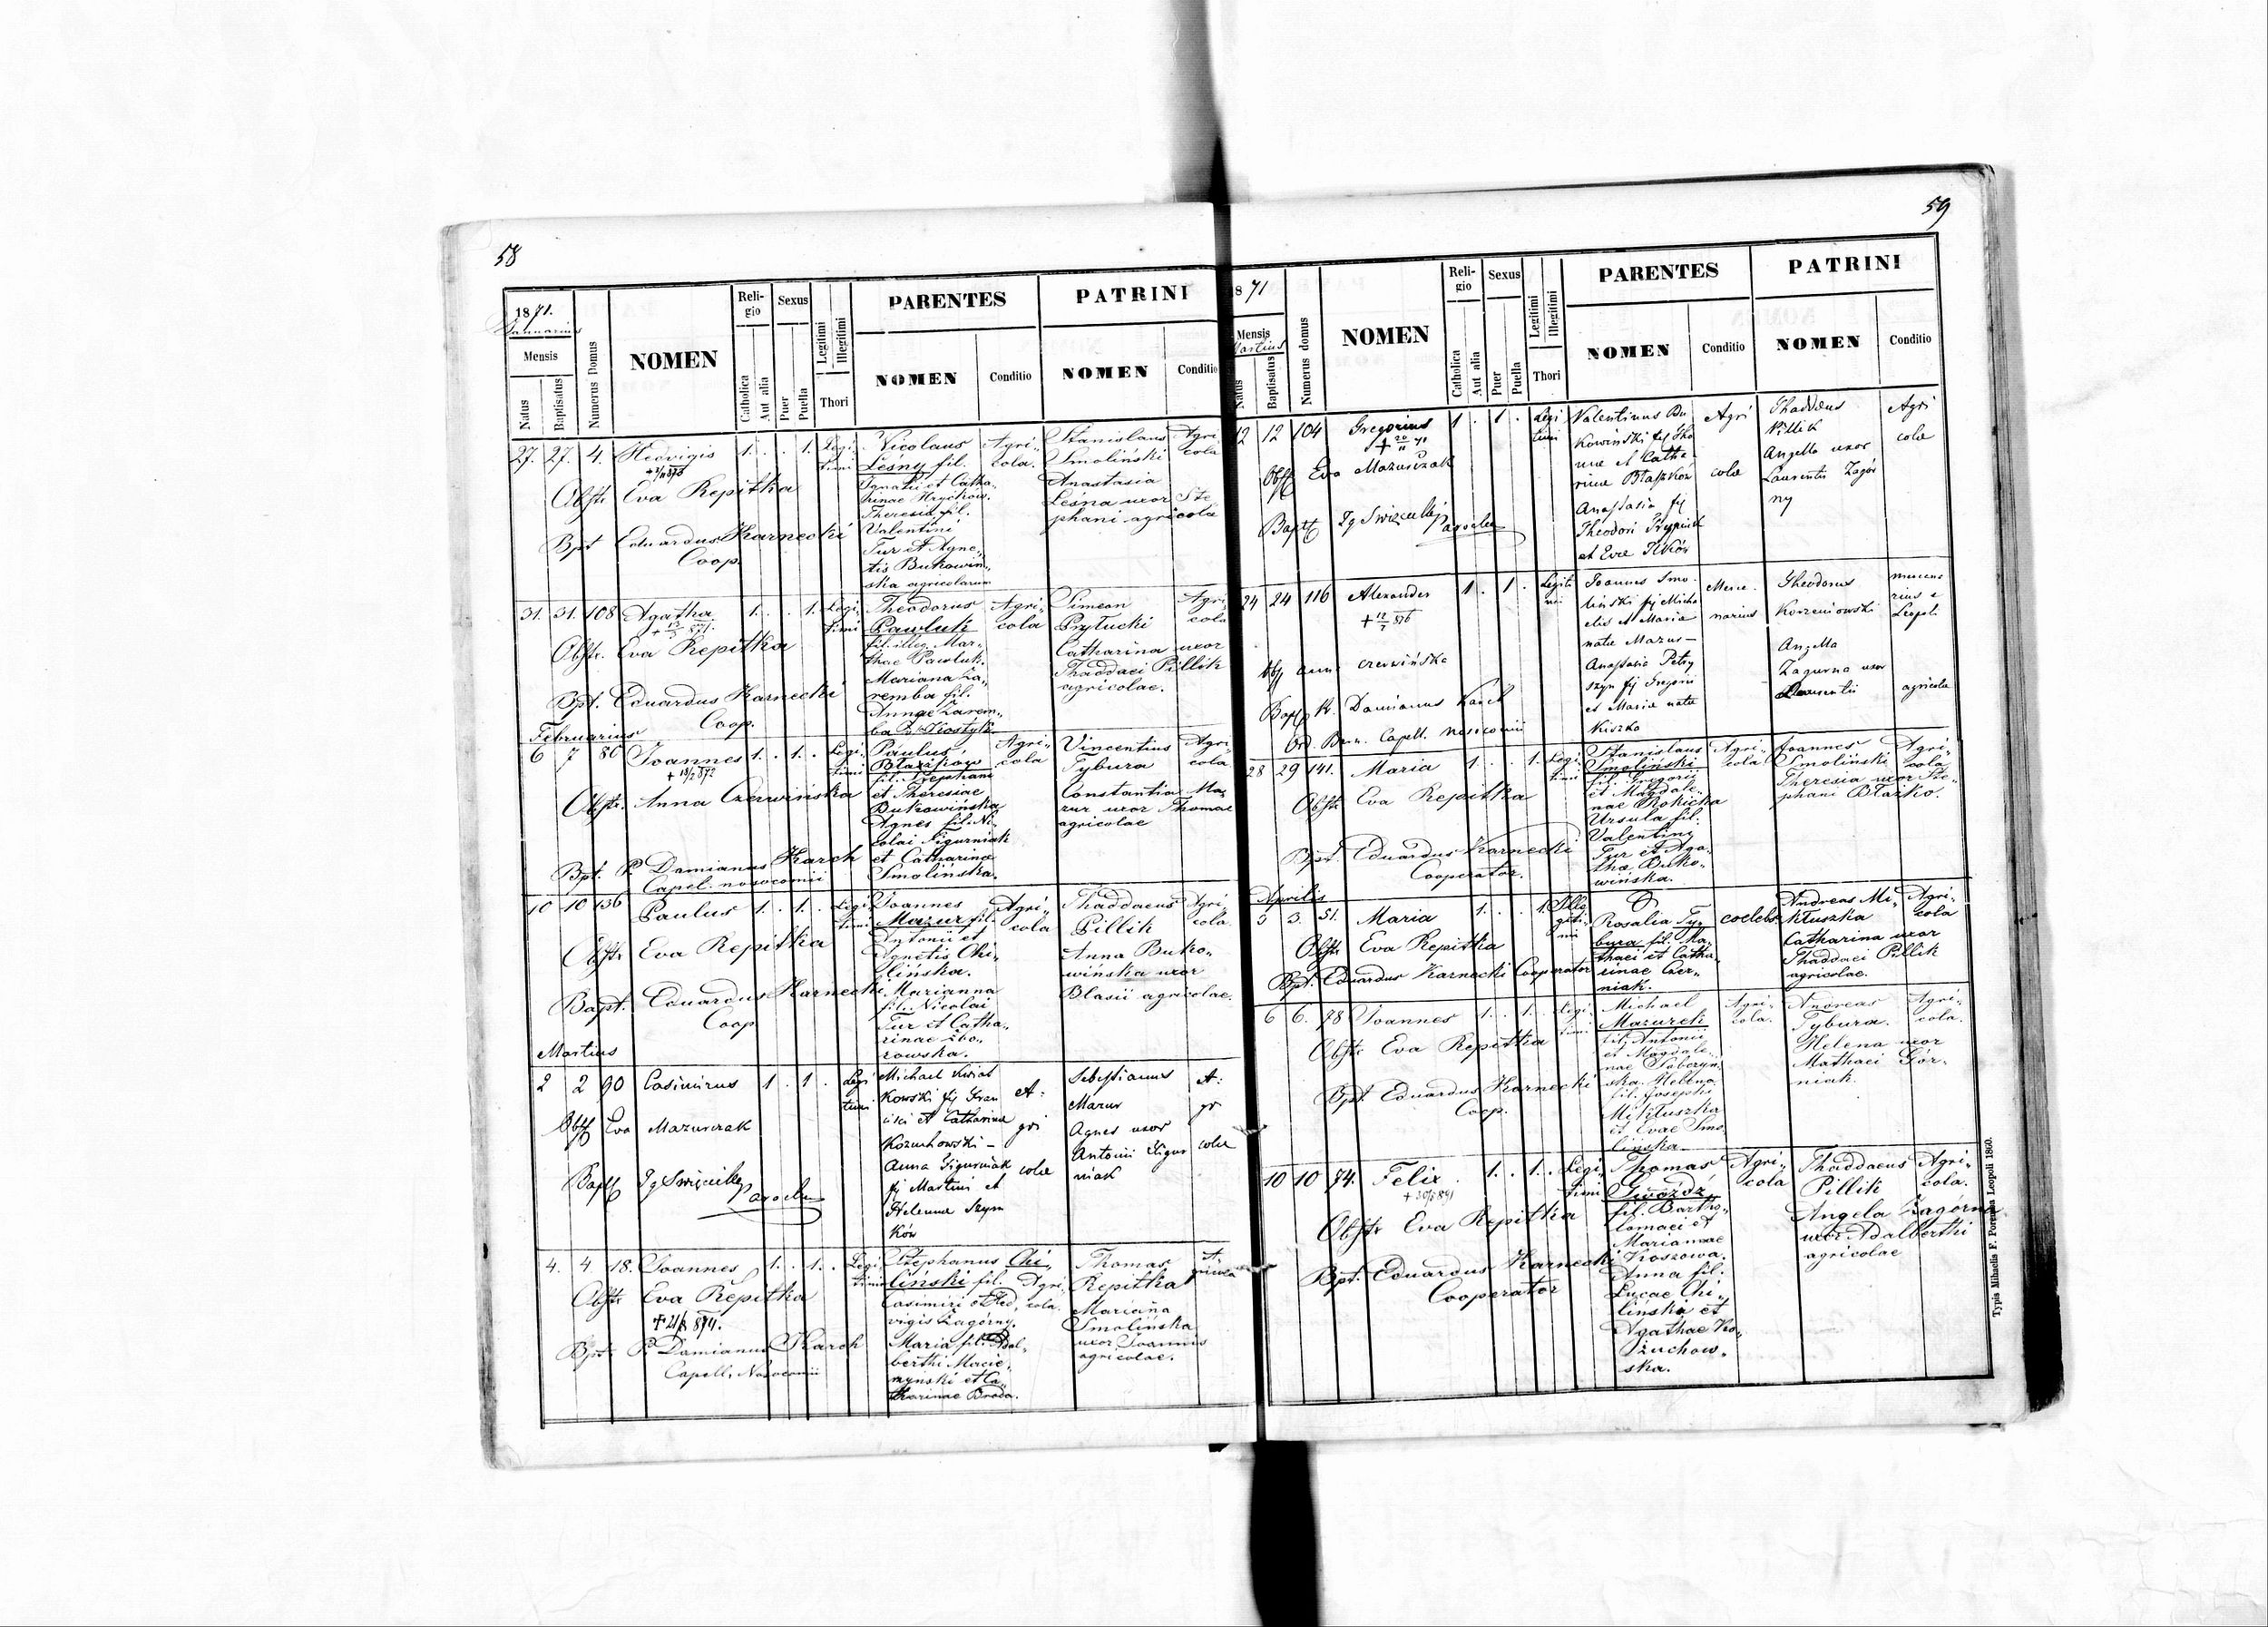 58
1871.
Januarius
Mensis
Natus
Baptisatus
Numerus Domus
NOMEN
Reli-
gio
Catholica
Aut alia
Sexus
Puer
Puella
Legitimi
Illegitimi
Thori
PARENTES
NOMEN
Conditio
PATRINI
NOMEN
Conditio
27. 27. 4. Hedvigis 1. . . 1. Legi-
timi
Obstr Eva Repitka
Bpt Eduardus Karnecki
Coop.
Nicolaus
Leśny fil.
Ignatii et Catha-
rinae Hryćków.
Theresia fil.
Valentini
Tur et Agne-
tis Bukowiń-
ska agricolarum
Agri-
cola.
Stanislaus
Smoliński
Anastasia
Leśna uxor Ste-
phani agricolae
Agri-
cola
31. 31. 108 Agatha 1. . . 1. Legi-
timi
Obstr. Eva Repitka
Bpt. Eduardus Karnecki
Coop.
Theodorus
Pawluk
fil. illeg. Mar-
thae Pawluk.
Mariana Za-
remba fil.
Annae Zarem-
ba
Agri-
cola
Simeon
Prytucki
Catharina uxor
Thaddaei Pillik
agricolae.
Agri-
cola
Februarius
6 7 86 Joannes 1. . 1. . Legi-
timi
+ 13/2 872
Obstr. Anna Czerwińska
Bpt. P. Damianus Karch
Capel. nosocomii
Paulus
Błażków
fil. Stephani
et Theresiae
Bukowińska
Agnes fil. Ni-
colai Figurniak
et Catharinae
Smolinska.
Agri-
cola
Vincentius
Tybura
Constantia Ma-
zur uxor Thomae
agricolae
Agri-
cola
10 10 136 Paulus 1. . 1. . Legi-
timi
Obstr Eva Repitka
Bapt. Eduardus Karnecki
Coop
Joannes
Mazur fil.
Antonii et
Agnetis Chi-
lińska.
Marianna
fil. Nicolai
Tur et Catha-
rinae Zbo-
rowska.
Agri-
cola
Thaddaeus
Pillik
Anna Buko-
wińska uxor
Blasii agricolae.
Agri-
cola
Martius
2 2 90 Casimirus 1 . 1 . Legi
timi
Obst Eva Mazurczak
Michael Kwiat
kowski fil Fran
cisci et Catharina
Kozuchowski -
Anna Figurniak
fil Martini et
Helenae Szym
ków
A-
gri
colae
Sebastianus
Mazur
Agnes uxor
Antonii Figur
niak
A-
gr
colae
4. 4 18. Joannes 1. . 1. . Legi-
timi
Obstr Eva Repitka
Bpt. P. Damianus Karch
Capell. Nosocomii
Stephanus Chi-
liński fil.
Casimiri et Hed-
vigis Zagórny.
Maria fil. Adal-
berthi Macie-
mynski et Ca-
tharinae Broda.
Agri-
cola.
Thomas
Repitka
Marianna
Smolińska
uxor Joannis
agricolae.
59
1871
Mensis
Martius
Natus
Baptisatus
Numerus domus
NOMEN
Reli-
gio
Catholica
Aut alia
Sexus
Puer
Puella
Legitimi
Illegitimi
Thori
PARENTES
NOMEN
Conditio
PATRINI
NOMEN
Conditio
12 12 104 Gregorius 1 . 1 . Legi
timi
Eva Mazurczak
Valentinus Bu
kowinski fil Tho
mae et Catha
rinae Błaszków
Anastasia fil
Theodori
et Evae Ilków
Agri
colae
Thaddeus
Pillik
Angella uxor
Laurentii Zagór
ny
Agri
colae
24 24 116 Alexander 1 . 1 . Legiti
mi
Anna Czerwińska
Bapt R. Damianus Karch
Ord. Bern. Capell. nosocomii
Joannes Smo-
liński fil Micha
elis et Maria
natae Mazur -
Anastasia Petry
szyn fil Gregorii
et Mariae natae
Kiszko
Merce-
narius
Theodorus
Korzeniowski
Angella
Zagurna uxor
Laurentii
mercena
rius e
Leopoli
agricolae
28 29 141. Maria 1. . . 1. Legi-
timi
Obstr Eva Repitka
Bpt. Eduardus Karnecki
Cooperator.
Stanislaus
Smoliński
fil. Gregorii
et Magdale-
nae Rokicka
Ursula fil.
Valentiny
Tur et Aga-
tha Buko-
wińska.
Agri-
cola
Joannes
Smoliński
Theresia uxor Ste-
phani Błażko.
Agri-
cola
Aprilis
3 3. 51. Maria 1. . . 1. Ille-
giti-
mi
Obstr Eva Repitka
Bpt. Eduardus Karnecki Cooperator
Rosalia Ty-
bura fil. Ma-
thaei et Catha-
rinae Czer-
niak.
coelebs
Andreas Mi-
kłuszka
Catharina uxor
Thaddaei Pillik
agricolae.
Agri-
cola
6 6. 78 Joannes 1. . 1. . Legi-
timi
Obstr Eva Repitka
Bpt Eduardus Karnecki
Coop.
Michael
Mazurek
fil. Antonii
et Magdale-
nae Soboryń-
ska. Helena
fil. Josephi
Mikłuszka
et Evae Smo-
lińska.
Agri-
cola.
Andreas
Tybura.
Helena uxor
Mathaei Gór-
niak.
Agri-
cola.
10 10 74. Felix 1. . 1. . Legi-
timi
Obstr Eva Repitka
Bpt. Eduardus Karnecki
Cooperator
Thomas
Gwóźdź
fil. Bartho-
lomaei et
Mariannae
Koszowa.
Anna fil.
Lucae Chi-
linska et
Agathae Ko-
żuchow-
ska.
Agri-
cola
Thaddaeus
Pillik
Angela Zagórna
uxor Adalberthi
agricolae
Agri-
cola.
Typis Mihaelis F. Poremba Leopoli 1860.